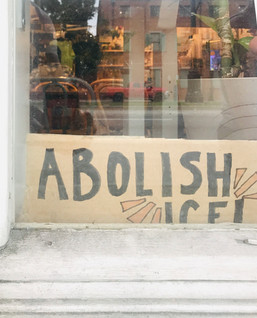 ABOLISH
ICE!